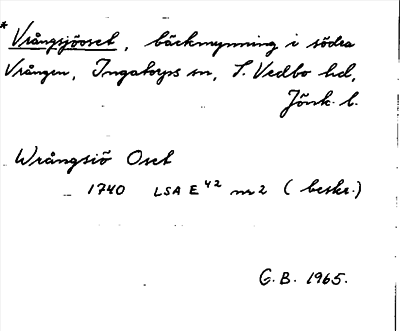 * Vrångsjöoset, bäckmynning i södra
Vrången, Ingatorps sn, S. Vedbo hd,
Jönk. l.
Wrångsiö Oset
1740 LSA E 42 nr 2 (beskr.)
G.B. 1965.